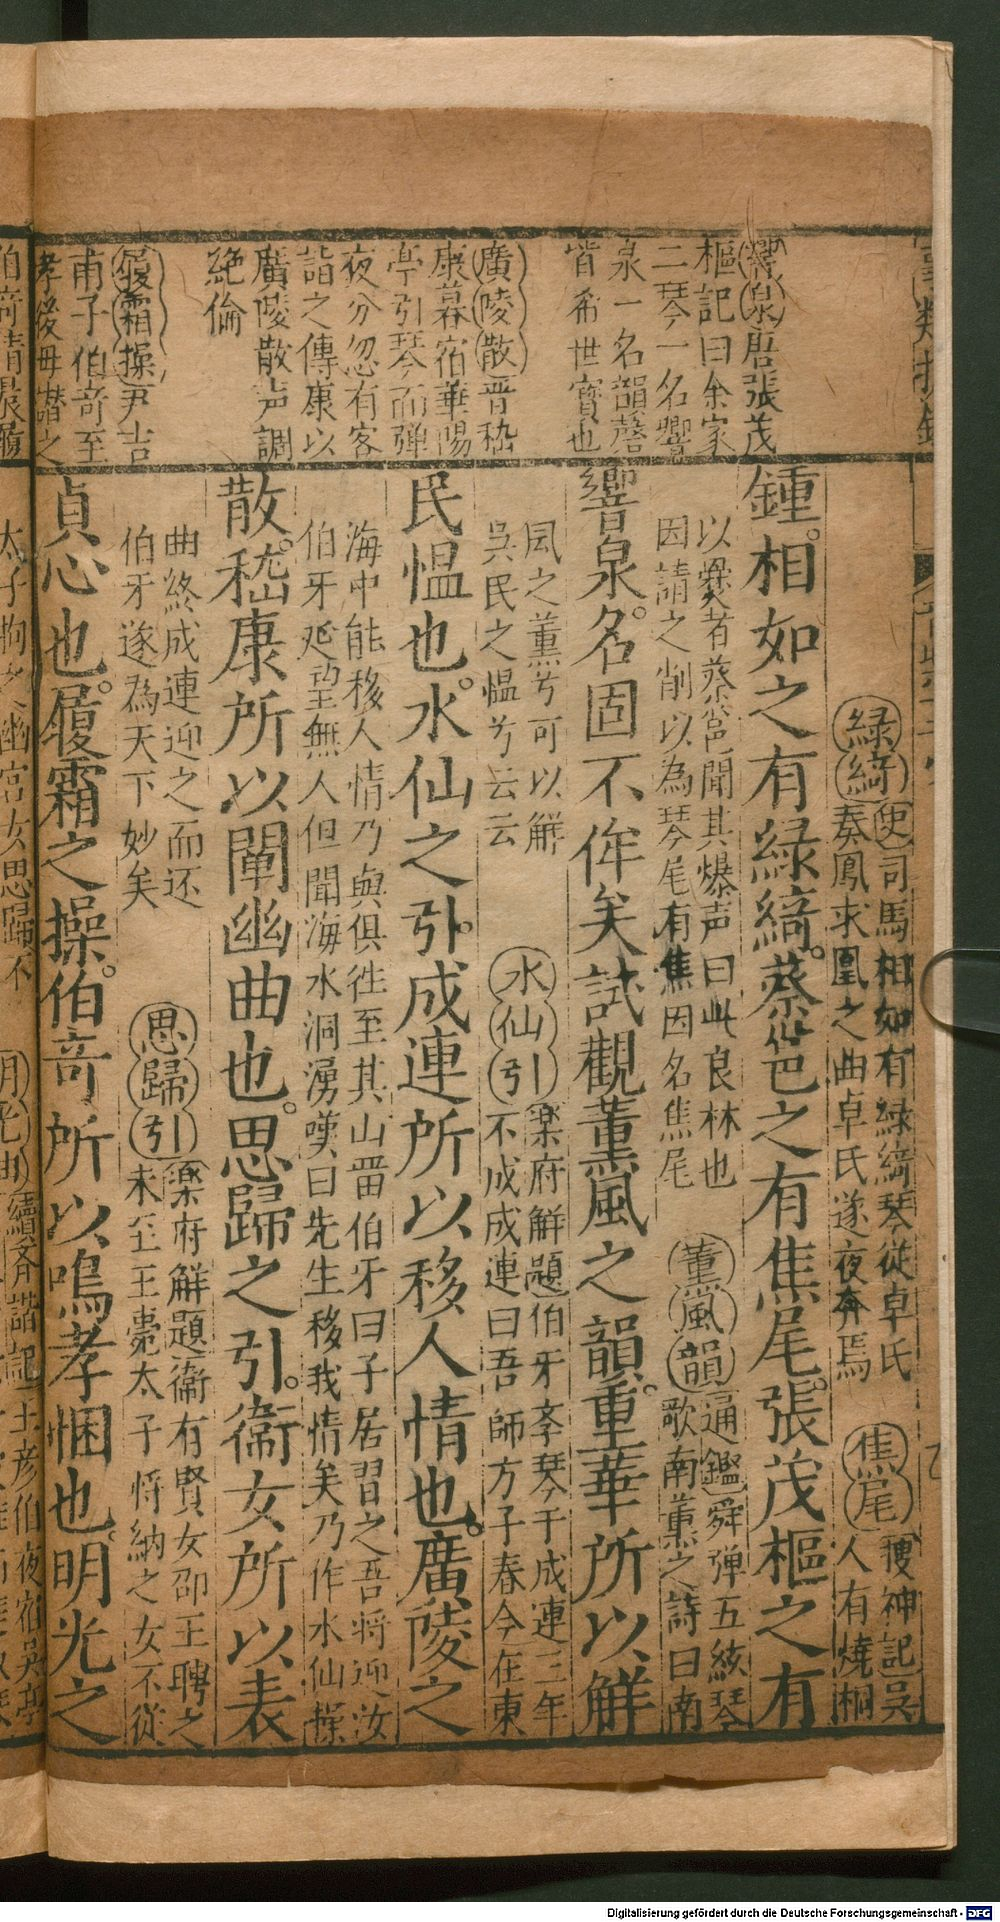 響泉唐張茂
樞記曰余家
二琴一名響
泉一名韻磬
皆希世寶也
廣陵散晋嵇
康暮宿華陽
亭引琴而弹
夜分忽有客
詣之傳康以
廣陵散声調
絶倫
履霜操尹吉
甫子伯奇至
孝後母譖之
緑綺史司馬相如有緑綺琴從卓氏
奏鳳求凰之曲卓氏遂夜奔焉
焦尾搜神記吳
人有燒桐
鍾。相如之有緑綺。蔡邕之有焦尾。張茂樞之有
以爨者蔡邕聞其爆声曰此良林也
因請之削以為琴尾有焦因名焦尾
薫風韻通鑑舜弹五絃琴
歌南薫之詩曰南
響泉。名固不侔矣試觀薫風之韻。重華所以解
風之薫兮可以解
吳民之愠兮云云
水仙引楽府解題伯牙孝琴于成連三年
不成成連曰吾師方子春今在東
民愠也。水仙之引。成連所以移人情也。廣陵之
海中能移人情乃與俱徃至其山畱伯牙曰子居習之吾将迎汝
伯牙延望無人但聞海水洞湧嘆曰先生移我情矣乃作水仙操
散。嵇康所以闡幽曲也。思歸之引。衞女所以表
曲終成連迎之而还
伯牙遂為天下妙矣
思歸引楽府解題衞有賢女邵王聘之
未至王薨太子将納之女不從
貞心也。履霜之操。伯奇所以鳴孝悃也。明光之
太子拘
幽宫女思歸不
明光曲續齐諧記王彦伯夜宿吳亭
Digitalisierung gefördert durch die Deutsche Forschungsgemeinschaft - DFG